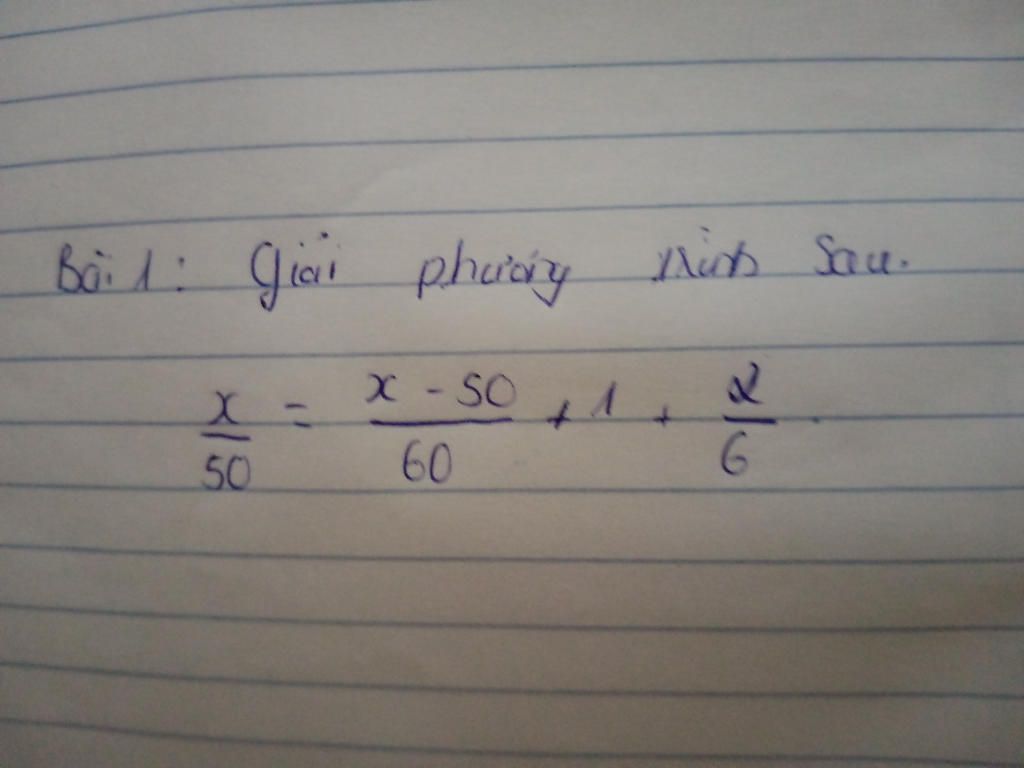 Bài 1: Giải phương trình sau.
x/50 = x - 50/60 + 1 + 2/6.